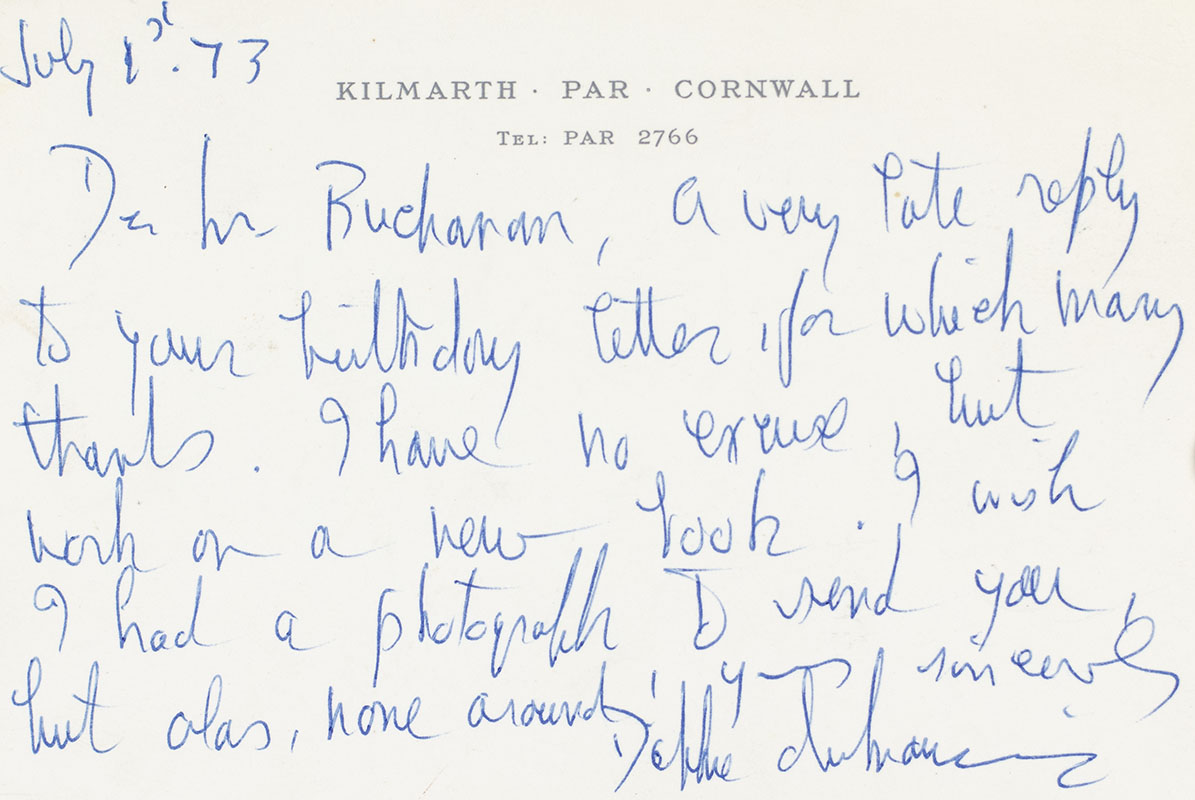 July 1st. 73
KILMARTH · PAR · CORNWALL
TEL: PAR 2766
Dear Mr Buchanan, a very late reply
to your birthday letter, for which many
thanks. I have no excuse, but
work on a new book. I wish
I had a photograph to send you,
but alas, none around! yours sincerely
Daphne du Maurier